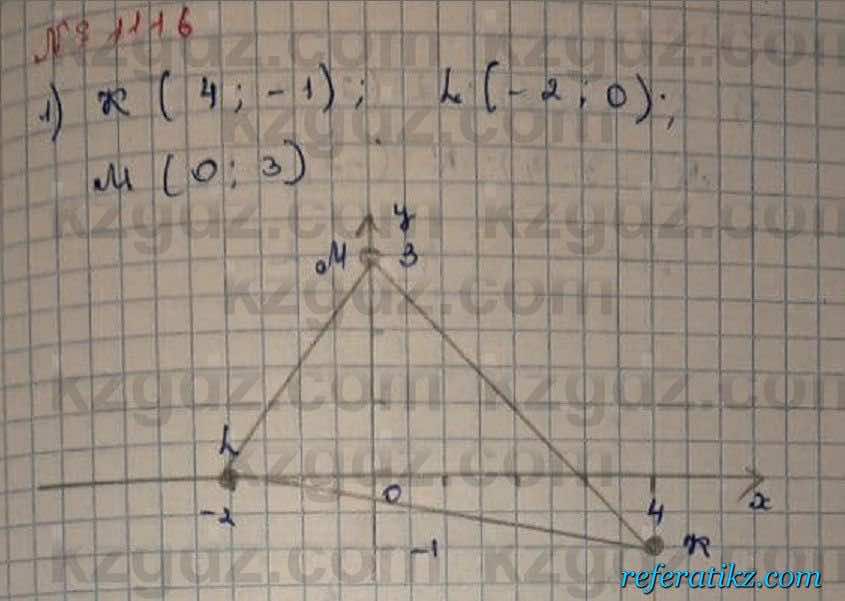 № 1116
1) K (4; -1); L (-2; 0);
M (0; 3)
y
M 3
L
0
-2 4 x
-1 K
kzgdz.com
referatikz.com